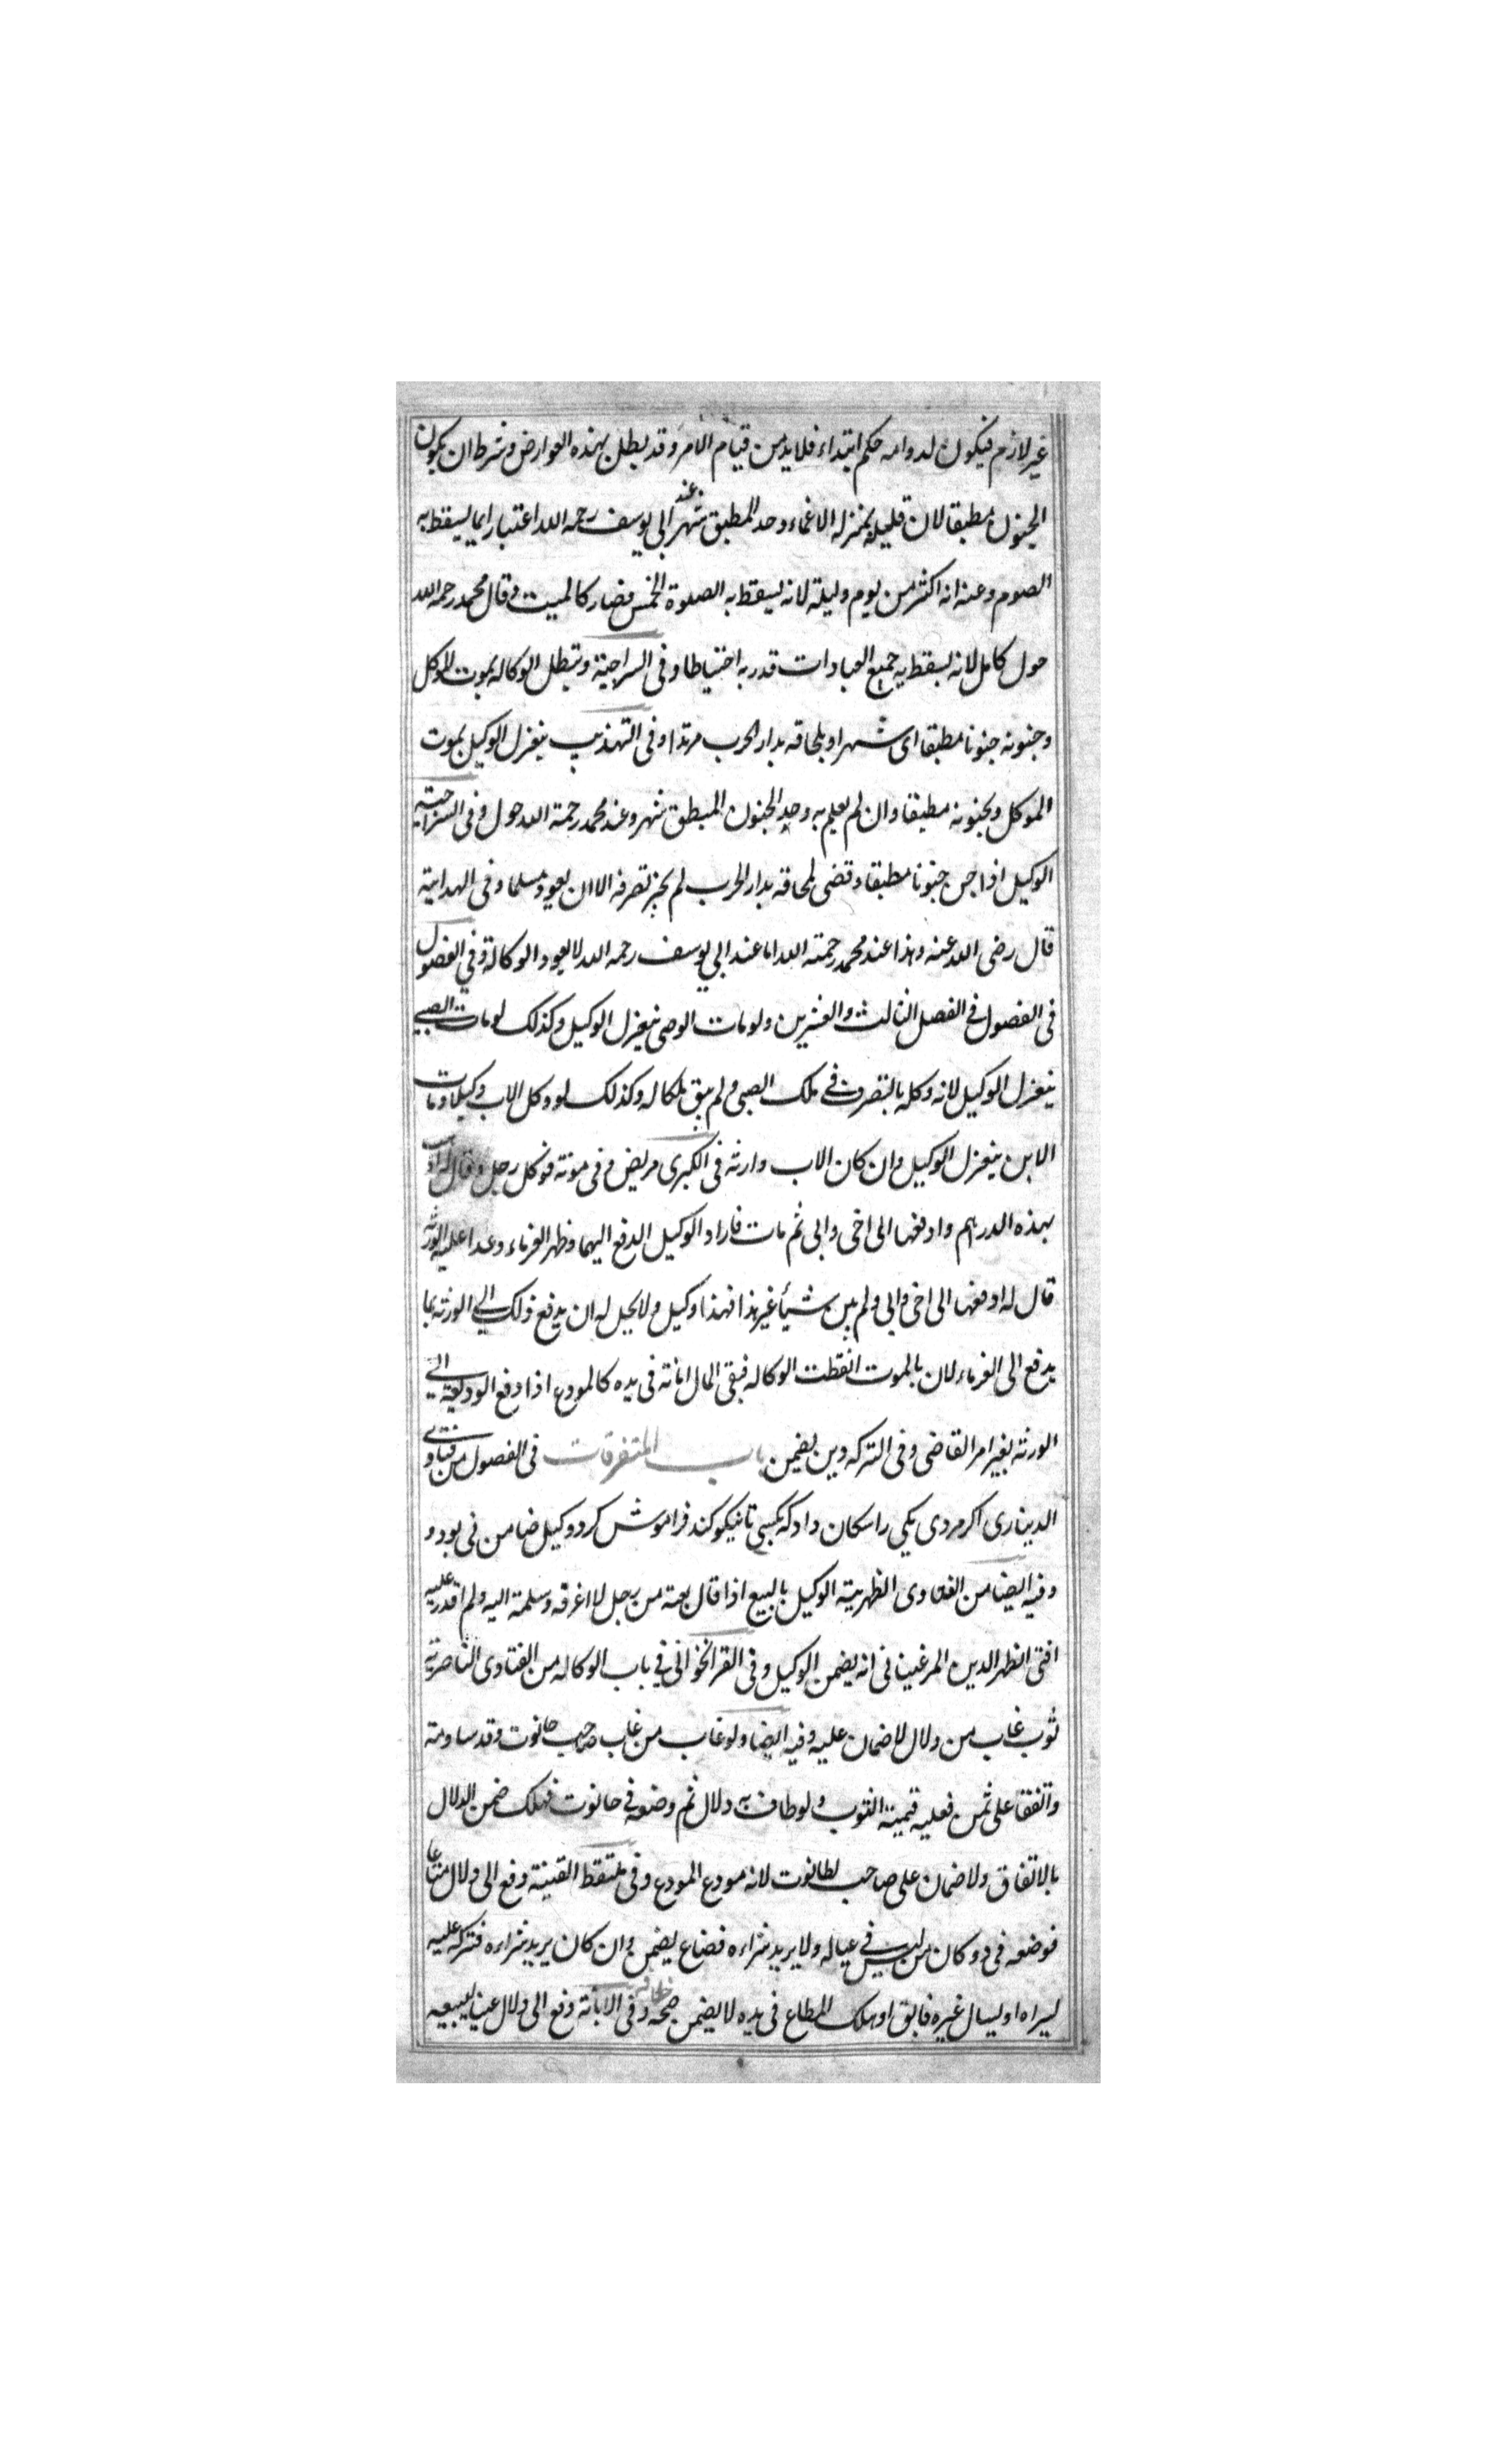 غير لازم فيكون لدوامه حكم ابتداء فلا بد من قيام الامر وقد بطل بهذه العوارض وشرط ان يكون
الجنون مطبقا لان قليله بمنزله الاغماء وحد المطبق شهر عند ابي يوسف رحمه الله اعتبارا بما يسقط به
الصوم وعنه انه اكثر من يوم وليلة لانه يسقط به الصلوة الخمس فصار كالميت وقال محمد رحمه الله
حول كامل لانه يسقط به جميع العبادات قدر به احتياطا وفى السراجية وتبطل الوكاله بموت الموكل
وجنونه جنونا مطبقا اى شهرا وبلحاقه بدار الحرب مرتدا وفى التهذيب ينعزل الوكيل بموت
الموكل وبجنونه مطبقا وان لم يعلم به وحد الجنون المبطق شهر وعند محمد رحمة الله حول وفى السراجيته
الوكيل اذا جن جنونا مطبقا وقضى لمحاقه بدار الحرب لم يجز تصرفه الا ان يعود مسلما وفى الهداية
قال رضى الله عنه وهذا عند محمد رحمته الله اما عند ابي يوسف رحمه الله لا يعود الوكالة وفي الفصول
فى الفصول فى الفصل الثالث والعشرين ولو مات الوصى ينعزل الوكيل وكذلك لو مات الصبي
ينعزل الوكيل لانه وكله بالتصرف فى ملك الصبى ولم يبق ملكا له وكذلك لو وكل الاب وكيلا ومات
الابن ينعزل الوكيل وان كان الاب وارثه فى الكبرى مريض فى موته فوكل رجل وقال له
بهذه الدرهم وادفعها الى اخى وابى ثم مات فاراد الوكيل الدفع اليهما وظهر الغرماء وعدا عليه الورثة
قال له ادفعها الى اخى وابى ولم يبين شيأ غير هذا فهذا وكيل ولا يحل له ان يدفع ذلك الي الورثة بما
يدفع الى الغرماء لان بالموت انقطت الوكاله فبقى المال امانة فى يده كالمودع اذا دفع الوديعة الي
الورثه بغير امر القاضى وفى التركه دين يضمن باب المتفرقات فى الفصول من فتاوى
الدينارى اكر مردى يكى را سكان داد كه بكسى تا نيكو كند فراموش كرد وكيل ضامن نى بود و
وفيه ايضا من الفتاوى الظهيرية الوكيل بالبيع اذا قال بعته من رجل لا اعرفه وسلمته اليه ولم اقدر عليه
افتى الظهر الدين المرغينانى انه يضمن الوكيل وفى القراخوانى فى باب الوكاله من الفتاوى الناصرية
ثوب غاب من دلال لا ضمان عليه وفيه ايضا ولو غاب من غاب صاحب حانوت وقد ساومته
واتفقا على ثمن فعليه قيمة الثوب ولو طاف به دلال ثم وضعه فى حانوت فهلك ضمن الدلال
بالاتفاق ولا ضمان على صاحب لطانوت لانه مودع المودع وفى ملتقط القينة دفع الى دلال متاعا
فوضعه فى دوكان من ليس فى عياله ولا يريد شراءه فضاع يضمن وان كان يريد شراءه فتركه عليه
ليراه او ليسال غيره فابق او هلك المطاع فى يده لا يضمن صحه وفى الابانة دفع الى دلال عينا ليبيعه